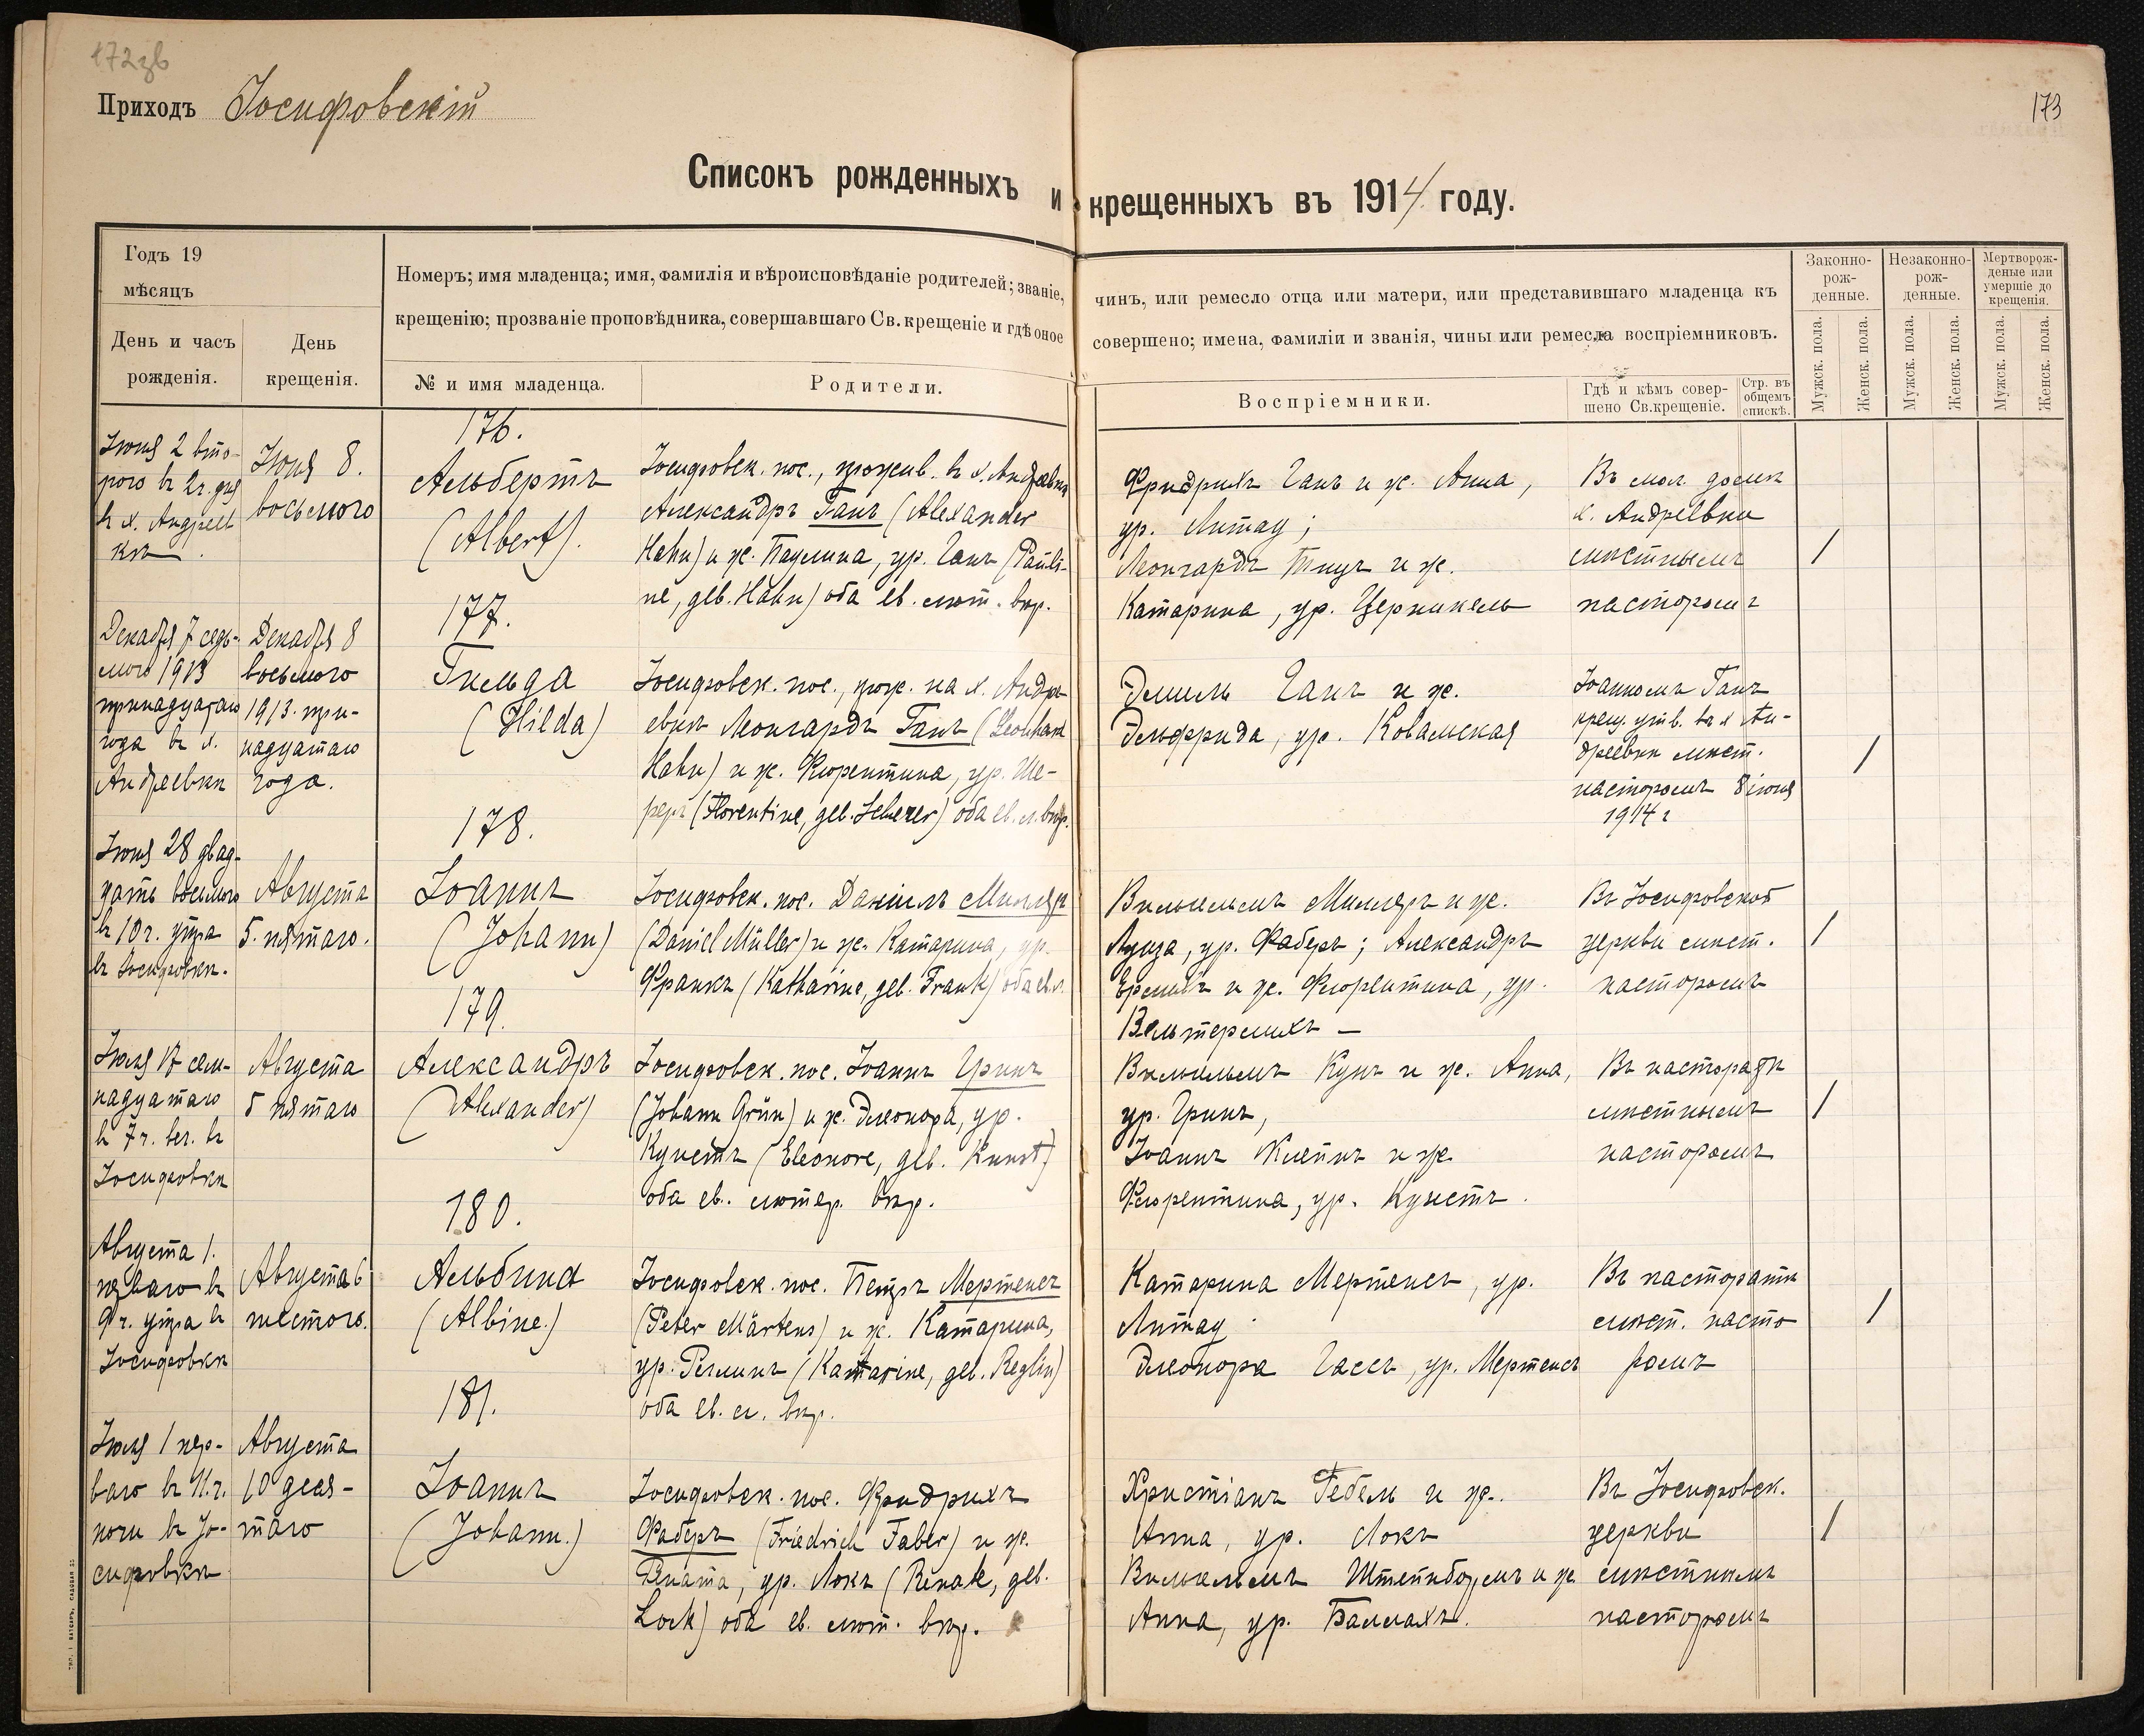 172зв
Приходъ Іосифовскій
173
Списокъ рожденныхъ и крещенныхъ въ 1914 году.
Годъ 19
мѣсяцъ
День и часъ
рожденія.
День
крещенія.
Номеръ; имя младенца; имя, фамилія и вѣроисповѣданіе родителей; званіе,
крещенію; прозваніе проповѣдника, совершавшаго Св. крещеніе и гдѣ оное
№ и имя младенца.
Родители.
чинъ, или ремесло отца или матери, или представившаго младенца къ
совершено; имена, фамиліи и званія, чины или ремесла воспріемниковъ.
Воспріемники.
Гдѣ и кѣмъ совер-
шено Св.крещеніе.
Стр. въ
общемъ
спискѣ.
Законно-
рож-
денные.
Незаконно-
рож-
денные.
Мертворож-
деные или
умершіе до
крещенія.
Мужск. пола.
Женск. пола.
Мужск. пола.
Женск. пола.
Мужск. пола.
Женск. пола.
Іюня 2 вто-
рого въ 2ч. дня
въ х. Андреев
кѣ.
Іюня 8.
восьмого
176.
Альбертъ
(Albert).
Іосифовск. пос., прожив. въ х. Андреевкѣ
Александръ Ганъ (Alexander
Hahn) и ж. Паулина, ур. Ганъ (Pauli-
ne, geb. Hahn) оба ев. лют. вѣр.
Фридрихъ Ганъ и ж. Анна,
ур. Литау;
Леонгардъ Тицъ и ж.
Катарина, ур. Церникель
Въ мол. домѣ
х. Андреевки
мѣстнымъ
пасторомъ
/
Декабря 7 седь-
мого 1913
тринадцатаго
года въ х.
Андреевкѣ
Декабря 8
восьмого
1913. три-
надцатаго
года.
177.
Гильда
(Hilda)
Іосифовск. пос., прож. на х. Андре
евкѣ Леонгардъ Ганъ (Leonhard
Hahn) и ж. Флорентина, ур. Ше-
реръ (Florentine, geb. Scherer) оба ев. л. вѣр.
Эмиль Ганъ и ж.
Эльфрида, ур. Ковальская
Іоанномъ Ганъ
крещ. утв. въ х Ан-
дреевкѣ мѣст.
пасторомъ 8 іюня
1914 г
/
28 двад-
цать восьмого
въ 10 ч. утра
въ Іосифовкѣ.
Августа
5. пятаго.
178.
Іоаннъ
(Johann)
Іосифовск. пос. Даніилъ Миллеръ
(Daniel Müller) и ж. Катарина, ур.
Франкъ (Katharine, geb. Frank) оба ев. л.
Вильгельмъ Миллеръ и ж.
Луиза, ур. Фаберъ; Александръ
и ж. Флорентина, ур.
Въ Іосифовской
церкви мѣст.
пасторомъ
/
Іюля 17 сем-
надцатаго
въ 7 ч. веч. въ
Іосифовкѣ
Августа
5 пятаго
179.
Александръ
(Alexander)
Іосифовск. пос. Іоаннъ Гринъ
(Johann Grün) и ж. Элеонора, ур.
Кунстъ (Eleonore, geb. Kunst)
оба ев. лютер. вѣр.
Вильгельмъ Кунъ и ж. Анна,
ур. Гринъ,
Іоаннъ Клейнъ и ж
Флорентина, ур. Кунстъ.
Въ пасторатѣ
мѣстнымъ
пасторомъ
/
Августа 1.
перваго въ
9 ч. утра въ
Іосифовкѣ
Августа 6
шестого.
180.
Альбина
(Albine.)
Іосифовск. пос. Петръ Мертенсъ
(Peter Märtens) и ж. Катарина,
ур. Реглинъ (Katharine, geb. Reglin)
оба ев. л. вѣр.
Катарина Мертенсъ, ур.
Литау
Элеонора Гассъ, ур. Мертенсъ
Въ пасторатѣ
мѣст. насто
ромъ
/
Іюля 1 пер-
ваго въ 11 ч.
ночи въ Іо-
сифовкѣ
Августа
10 деся-
таго
181.
Іоаннъ
(Johann.)
Іосифовск. пос. Фридрихъ
Фаберъ (Friedrich Faber) и ж.
Рената, ур. Локъ (Renate, geb.
Lock) оба ев. лют. вѣр.
Христіанъ Гебель и ж.
Анна, ур. Локъ
Вильгельмъ и ж
Анна, ур.
Въ Іосифовск.
церкви
мѣстнымъ
пасторомъ
/